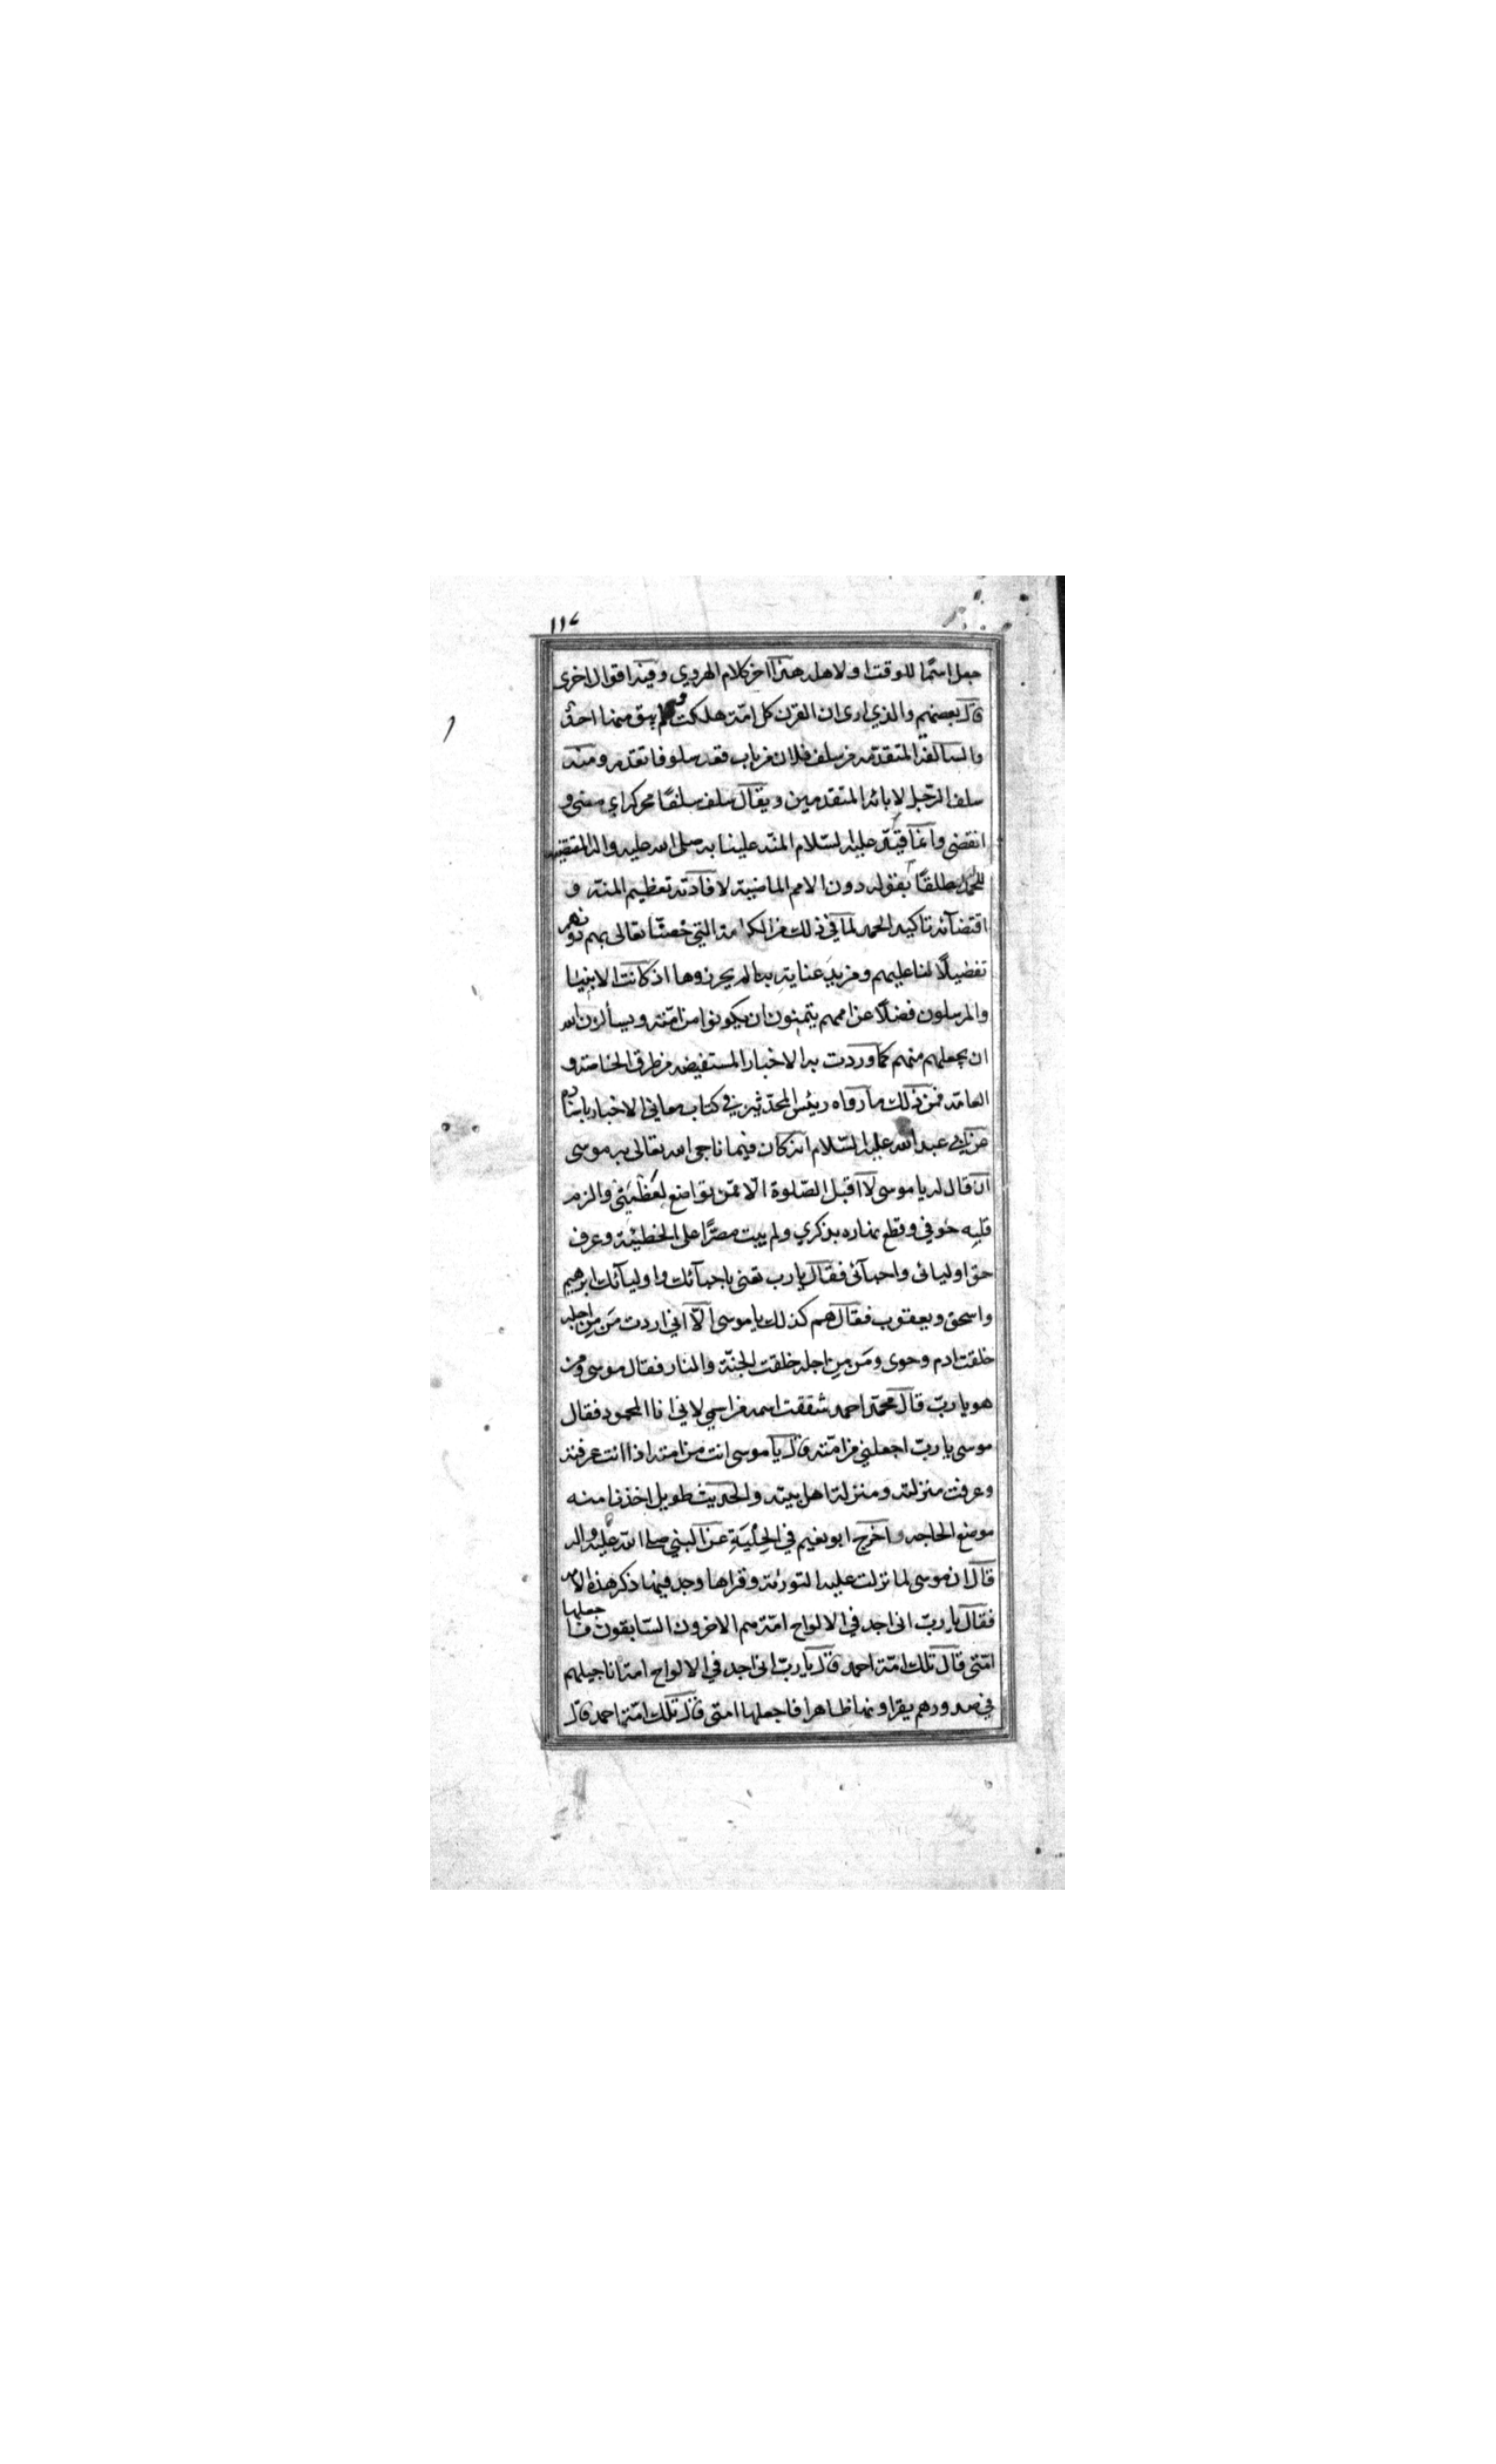 ١١٧
جعل اسمًا للوقت او لاهله هذا اخر كلام الهروي وفيه اقوال اخرى
قال بعضهم والذي ارى ان القرن كل امّة هلكت فلم يبق منها احد
والسالفة المتقدّمه من سلف فلان من باب قعد سلوفا تقدم ومنه
سلف الرّجل لابائه المتقدمين ويقال سلف سلفًا محركه اي مضى و
انقضى وانما قيّد عليه السّلام المنّه علينا به صلى الله عليه واله المقتضيه
للحمد مطلقًا بقوله دون الامم الماضية لافادته تعظيم المنّة و
اقتضآئه تاكيد الحمد لما في ذلك من الكرامة التي خصّنا تعالى بهم دونهم
تفضيلًا لنا عليهم ومزيد عنايةٍ بنا لم يحرزوها اذ كانت الانبيآ
والمرسلون فضلًا عن اممهم يتمنون ان يكونوا من امّته ويسألون الله
ان يجعلهم منهم كما وردت به الاخبار المستفيضه من طرق الخاصة و
العامّه فمن ذلك ما رواه رئيس المحدّثين في كتاب معاني الاخبار باسناده
عن ابي عبد الله عليه السّلام انه كان فيما ناجى الله تعالى به موسى
ان قال له يا موسى لا اقبل الصّلوة الّا ممّن تواضع لعظمتي والزم
قلبه خوفي وقطع نهاره بذكري ولم يبت مصرًّا على الخطيئة وعرف
حق اوليائى واحبآئى فقال يا رب تعنى باحبآئك واوليآئك ابرهيم
واسحق ويعقوب فقال هم كذلك يا موسى الّا اني اردت مَن مِن اجله
خلقت ادم وحوى ومَن مِن اجله خلقت الجنّة والنار فقال موسى ومن
هو يا ربّ قال محمّد احمد شققت اسمه من اسمي لاني انا المحمود فقال
موسى يا ربّ اجعلني من امّته قال يا موسى انت من امته اذا انت عرفته
وعرفت منزلته ومنزلة اهل بيته والحديث طويل اخذنا منه
موضع الحاجه واخرج ابو نعيم في الحِلْيَةِ عن النبي صلى الله عليه واله
قال ان موسى لما نزلت عليه التورية وقراها وجد فيها ذكر هذه الامة
فقال يا ربّ انى اجد في الالواح امّة هم الاخرون السّابقون فاجعلها
امّتى قال تلك امّة احمد قال يا ربّ انى اجد في الالواح امة اناجيلهم
في صدورهم يقراونها ظاهرا فاجعلها امتى قال تلك امّة احمد قال